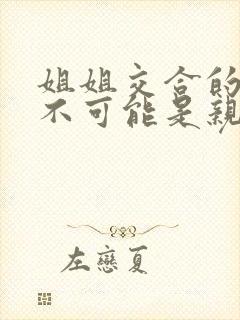 姐姐交合的
不可能是親
左戀夏